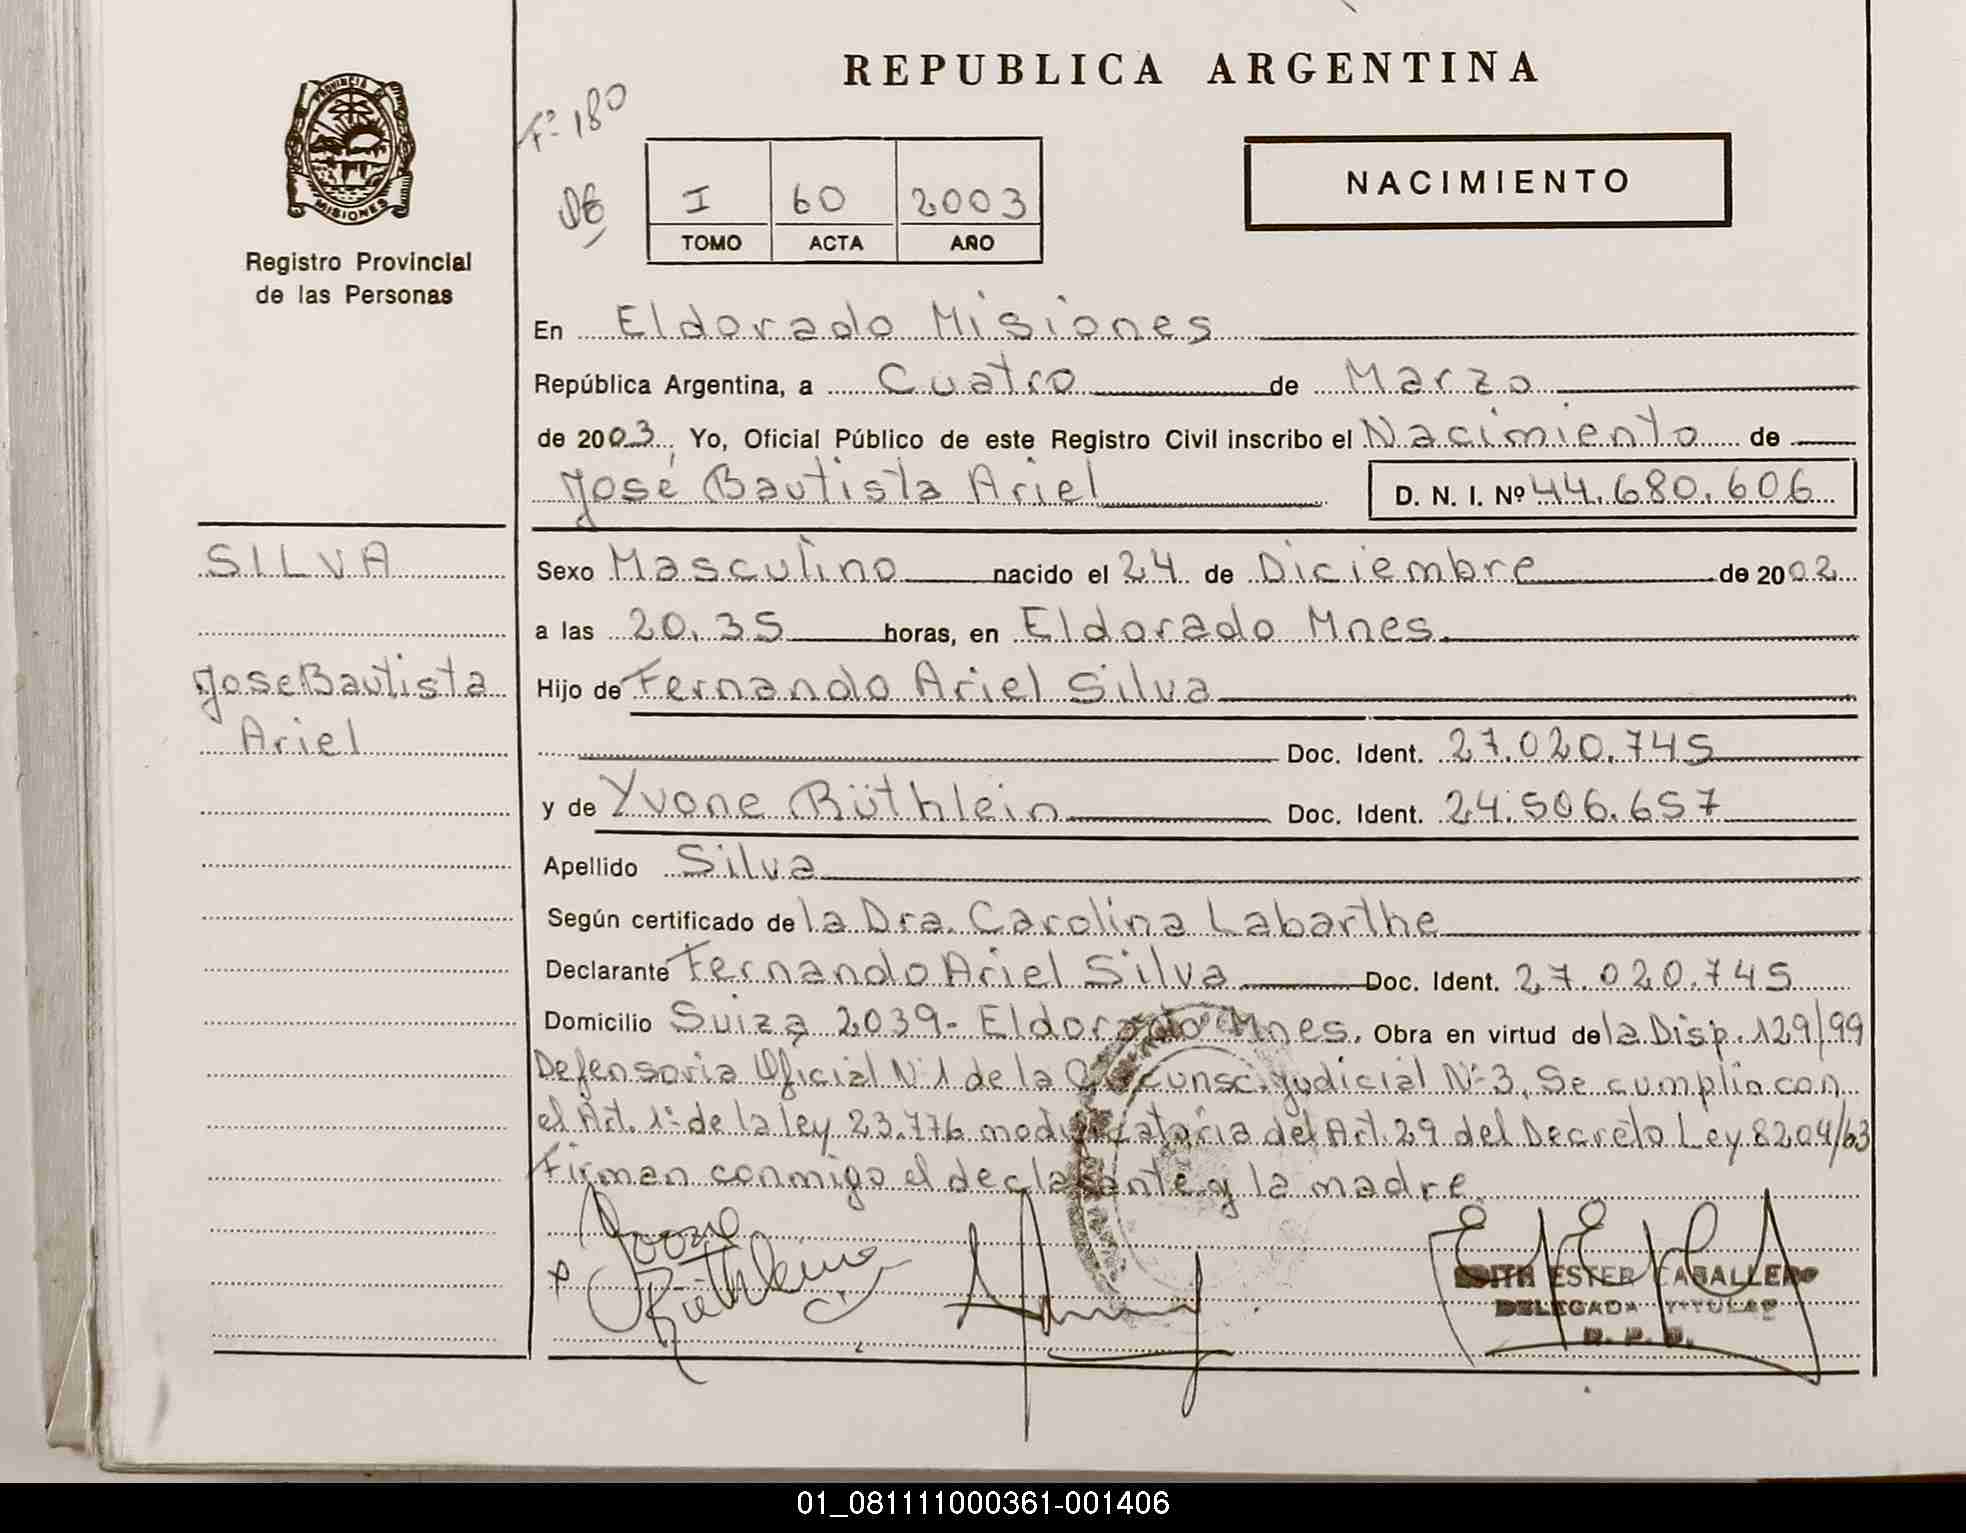 REPUBLICA ARGENTINA
PROVINCIA DE
MISIONES
Registro Provincial
de las Personas
Fº 180
I 60 2003
TOMO ACTA AÑO
NACIMIENTO
En Eldorado Misiones
República Argentina, a Cuatro de Marzo
de 2003, Yo, Oficial Público de este Registro Civil inscribo el Nacimiento de
José Bautista Ariel D. N. I. Nº 44.680.606
SILVA
Jose Bautista
Ariel
Sexo Masculino nacido el 24 de Diciembre de 2002
a las 20.35 horas, en Eldorado Mnes.
Hijo de Fernando Ariel Silva
Doc. Ident. 27.020.745
y de Yvone Rüthlein Doc. Ident. 24.506.657
Apellido Silva
Según certificado de la Dra. Carolina Labarthe
Declarante Fernando Ariel Silva Doc. Ident. 27.020.745
Domicilio Suiza 2039- Eldorado Mnes. Obra en virtud de la Disp. 129/99
Defensoria Oficial Nº1 de la Circunsc. Judicial Nº 3. Se cumplio con
el Art. 1º de la ley 23.776 modificatoria del Art. 29 del Decreto Ley 8204/63
Firman conmigo el declarante y la madre.
EDITH ESTER CABALLERO
DELEGADA TITULAR
01_081111000361-001406